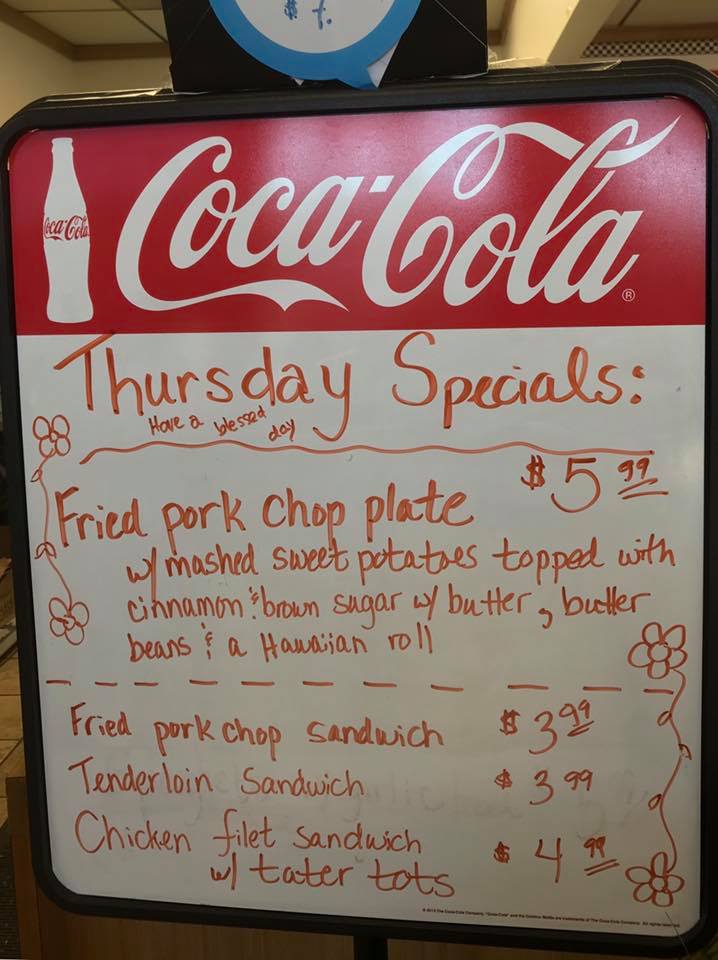 $ 7.
Coca-Cola
Coca-Cola ®
Thursday Specials:
Have a blessed day
$5 99
Fried pork chop plate
w/ mashed sweet potatoes topped with
cinnamon & brown sugar w/ butter, butter
beans & a Hawaiian roll
Fried pork chop sandwich $3 99
Tenderloin Sandwich $3 99
Chicken filet sandwich $4 99
w/ tater tots